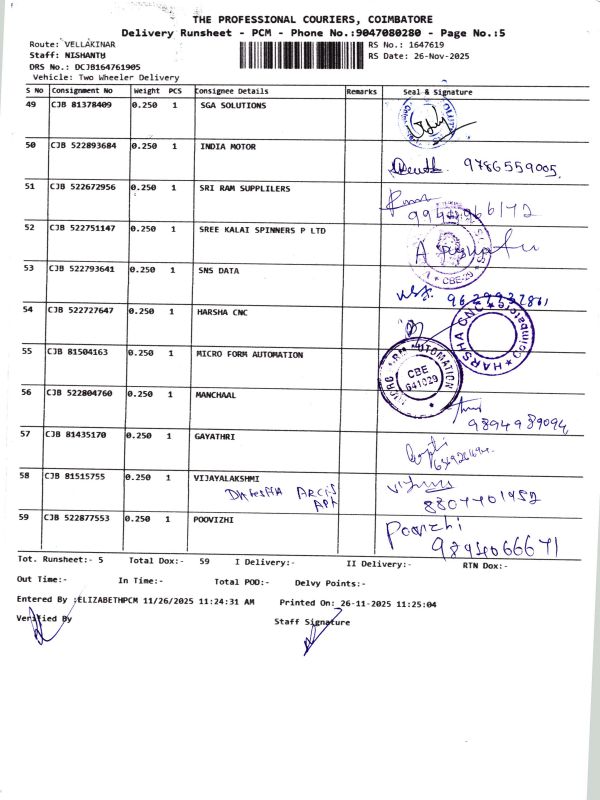 THE PROFESSIONAL COURIERS, COIMBATORE
Delivery Runsheet - PCM - Phone No.:9047080280 - Page No.:5
Route: VELLAKINAR
RS No.: 1647619
Staff: NISHANTH
RS Date: 26-Nov-2025
DRS No.: DCJB164761905
Vehicle: Two Wheeler Delivery
S No Consignment No Weight PCS Consignee Details Remarks Seal & Signature
49 CJB 81378409 0.250 1 SGA SOLUTIONS
50 CJB 522893684 0.250 1 INDIA MOTOR
9786559005
51 CJB 522672956 0.250 1 SRI RAM SUPPLILERS
52 CJB 522751147 0.250 1 SREE KALAI SPINNERS P LTD
CBE-29
53 CJB 522793641 0.250 1 SNS DATA
54 CJB 522727647 0.250 1 HARSHA CNC
HARSHA CNC Coimbatore
55 CJB 81504163 0.250 1 MICRO FORM AUTOMATION
AUTOMATION
CBE
641029
56 CJB 522804760 0.250 1 MANCHAAL
9894989094
57 CJB 81435170 0.250 1 GAYATHRI
58 CJB 81515755 0.250 1 VIJAYALAKSHMI
APT
8807701952
59 CJB 522877553 0.250 1 POOVIZHI
Poovizhi
9894066671
Tot. Runsheet:- 5 Total Dox:- 59 I Delivery:- II Delivery:- RTN Dox:-
Out Time:- In Time:- Total POD:- Delvy Points:-
Entered By :ELIZABETHPCM 11/26/2025 11:24:31 AM Printed On: 26-11-2025 11:25:04
Verified By
Staff Signature